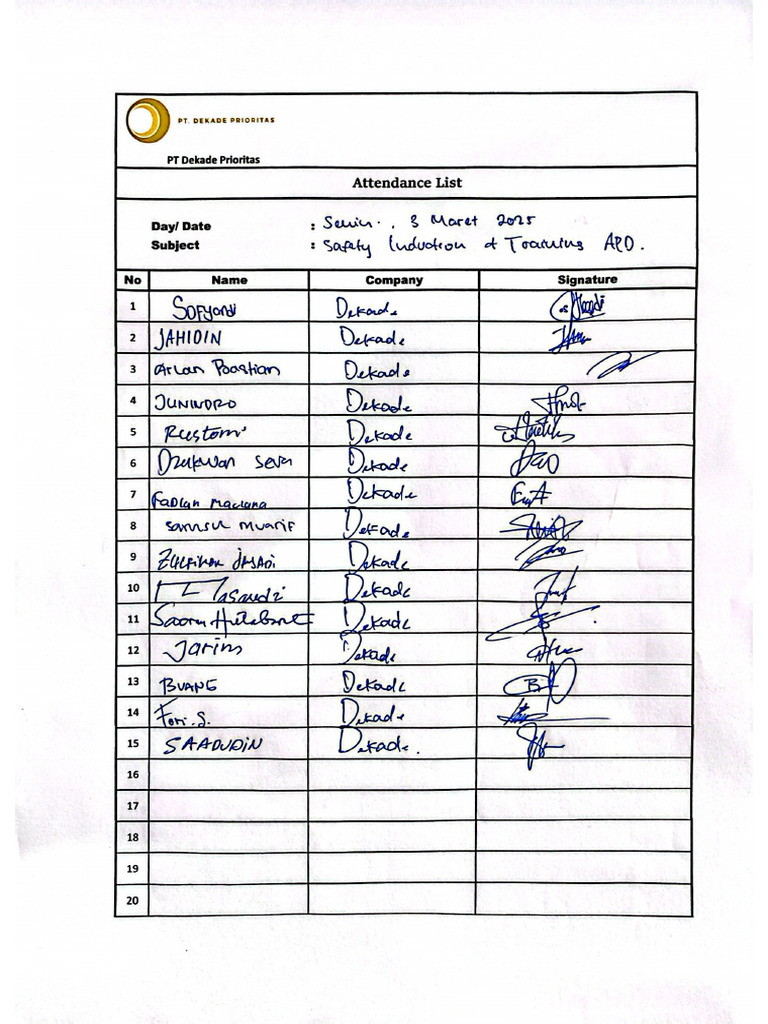 PT. DEKADE PRIORITAS
PT Dekade Prioritas
Attendance List
Day/ Date : Senin , 3 Maret 2025
Subject : Safety Induction & Training APD.
No Name Company Signature
1 Sofyandi Dekade
2 JAHIDIN Dekade
3 Arlan Dekade
4 JUNINDRO Dekade
5 Rustomi Dekade
6 Dzakwan Dekade
7 Fadlan Maulana Dekade
8 Samsul Muarif Dekade
9 Zulfikar Dekade
10 Masaudzi Dekade
11 Dekade
12 Jarims Dekade
13 BUANE Dekade
14 Dekade
15 SAADUDIN Dekade.
16
17
18
19
20